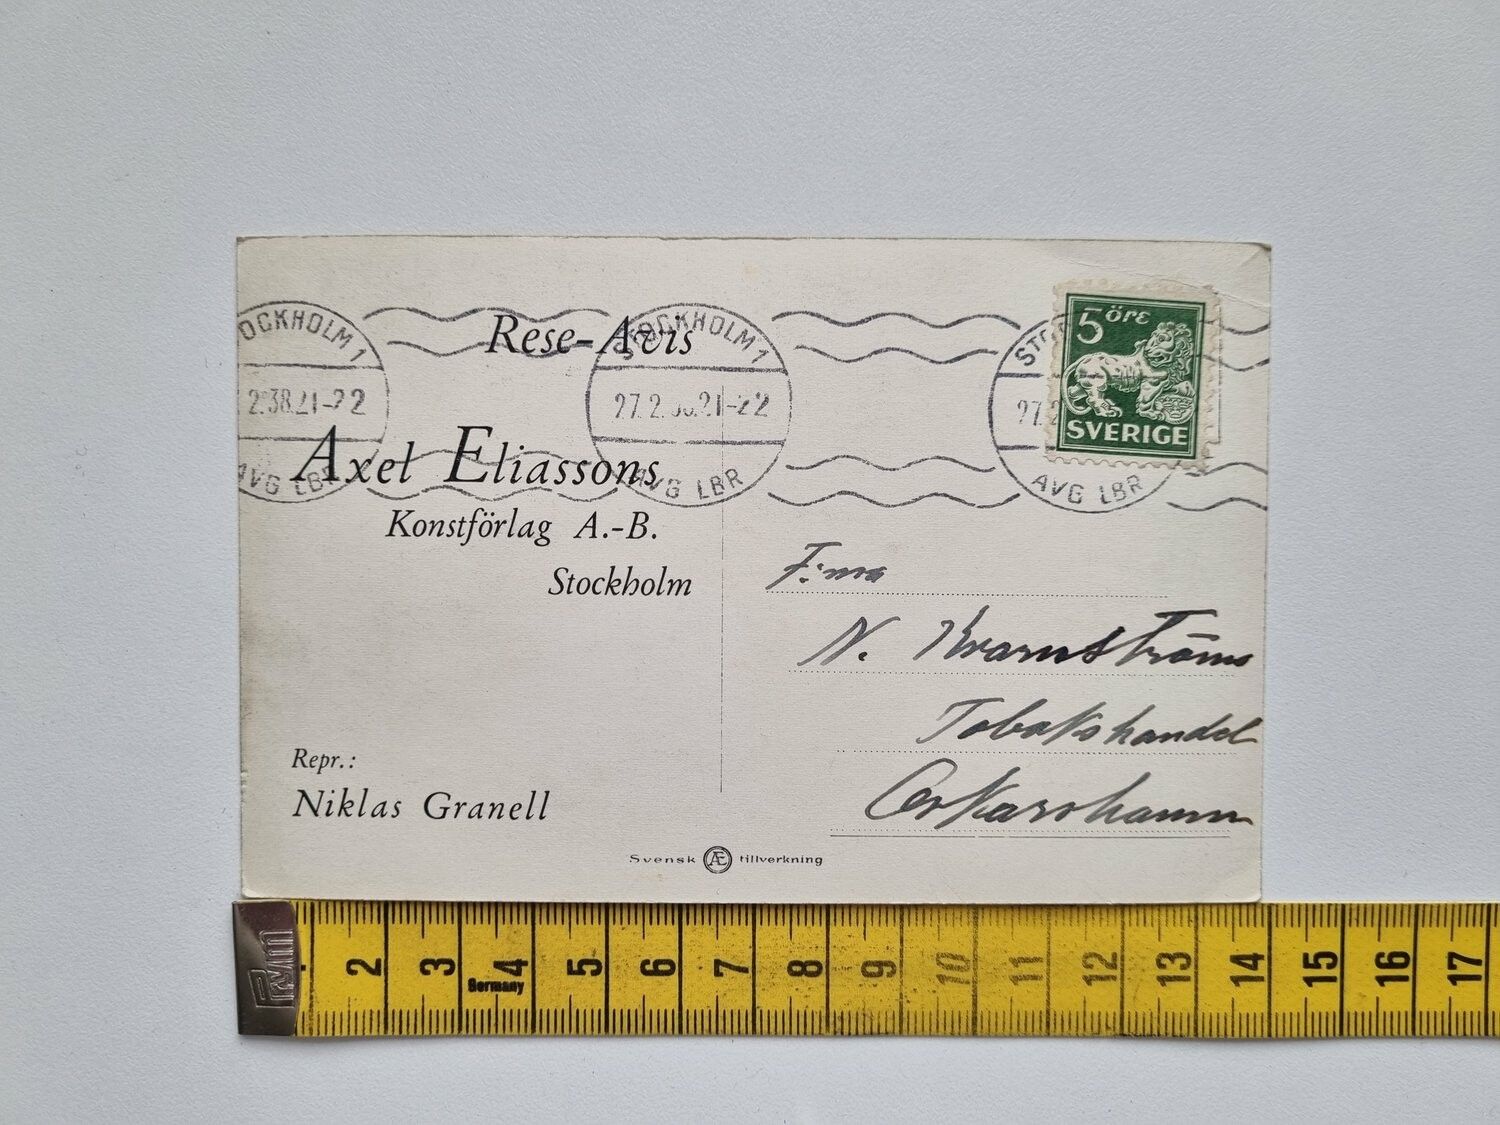 STOCKHOLM 1
27.2.38.21-22
AVG LBR
5 öre
SVERIGE
Rese-Avis
Axel Eliassons
Konstförlag A.-B.
Stockholm
Repr.:
Niklas Granell
Firma
N. Kvarnströms
Tobakshandel
Oskarshamn
Svensk Æ tillverkning
OCKHOLM 1
2.38.21-22
AVG LBR
STO
27.2
AVG LBR
Prym
2 3 4 5 6 7 8 9 10 11 12 13 14 15 16 17
Germany